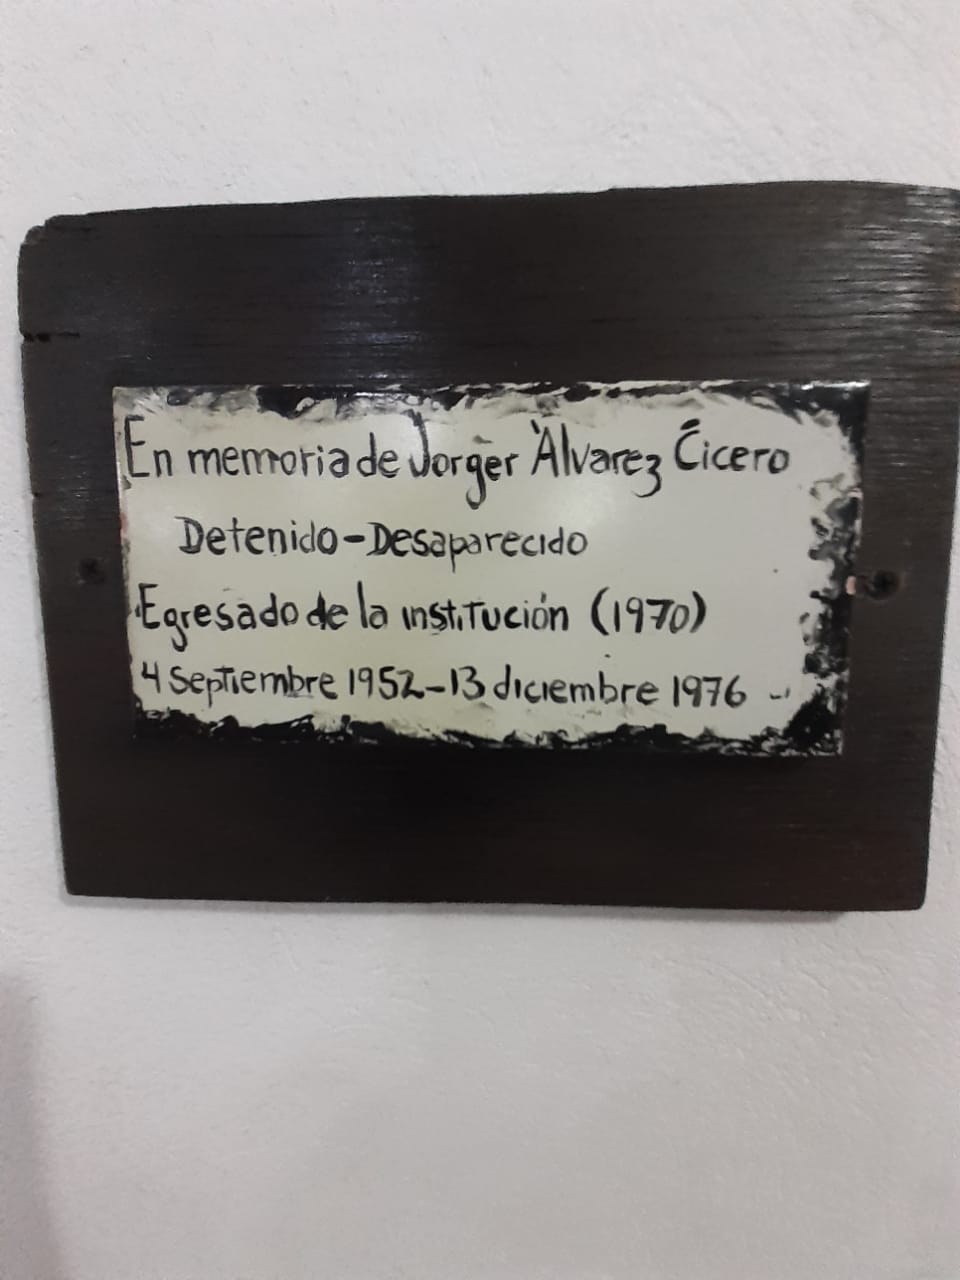 En memoria de Jorger Álvarez Cicero
Detenido-Desaparecido
Egresado de la institución (1970)
4 Septiembre 1952-13 diciembre 1976